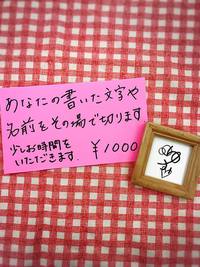 あなたの書いた文字や
名前をその場で切ります
少しお時間を
いただきます.
￥1000